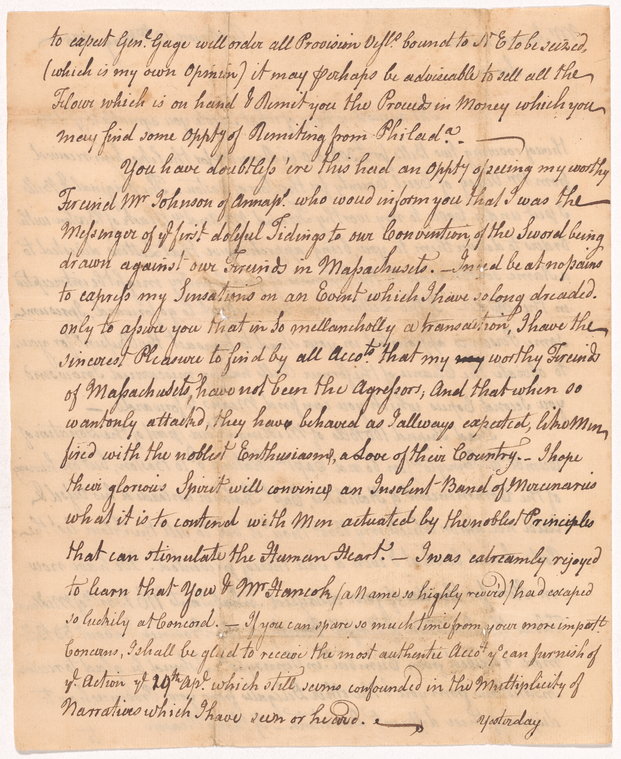 to expect Genl. Gage will order all Provision Vessls. bound to N E to be seized,
(which is my own Opinion) it may perhaps be adviceable to sell all the
Flour which is on hand & Remit you the Proceeds in Money which you
may find some Oppty of Remiting from Philada. —
You have doubtless 'ere this had an Oppty of seeing my worthy
Freind Mr Johnson of Annaps. who woud inform you that I was the
Messenger of ye first doleful Tidings to our Convention, of the Sword being
drawn against our Freinds in Massachusets. — I need be at no pains
to express my Sensations on an Event which I have so long dreaded.
only to assure you that in so mellancholly a transaction, I have the
sincerest Pleasure to find by all Accots. that my worthy Freinds
of Massachusets, have not been the Agressors, And that when so
wantonly attackd, they have behaved as I allways expected, like Men
fired with the noblest Enthusiasm, a Love of their Country. — I hope
their glorious Spirit will convince an Insolent Band of Mercinaries
what it is to contend with Men actuated by the noblest Principles
that can stimulate the Human Heart. — I was extreamly rejoyed
to learn that You & Mr Hancok (a Name so highly reverd) had escaped
so luckily at Concord. — If you can spare so much time from your more import.
Concerns, I shall be glad to receive the most authentic Accot. ye can furnish of
ye. Action ye 19th Apl. which still seems confounded in the Multiplicity of
Narratives which I have seen or heard. —
Yesterday